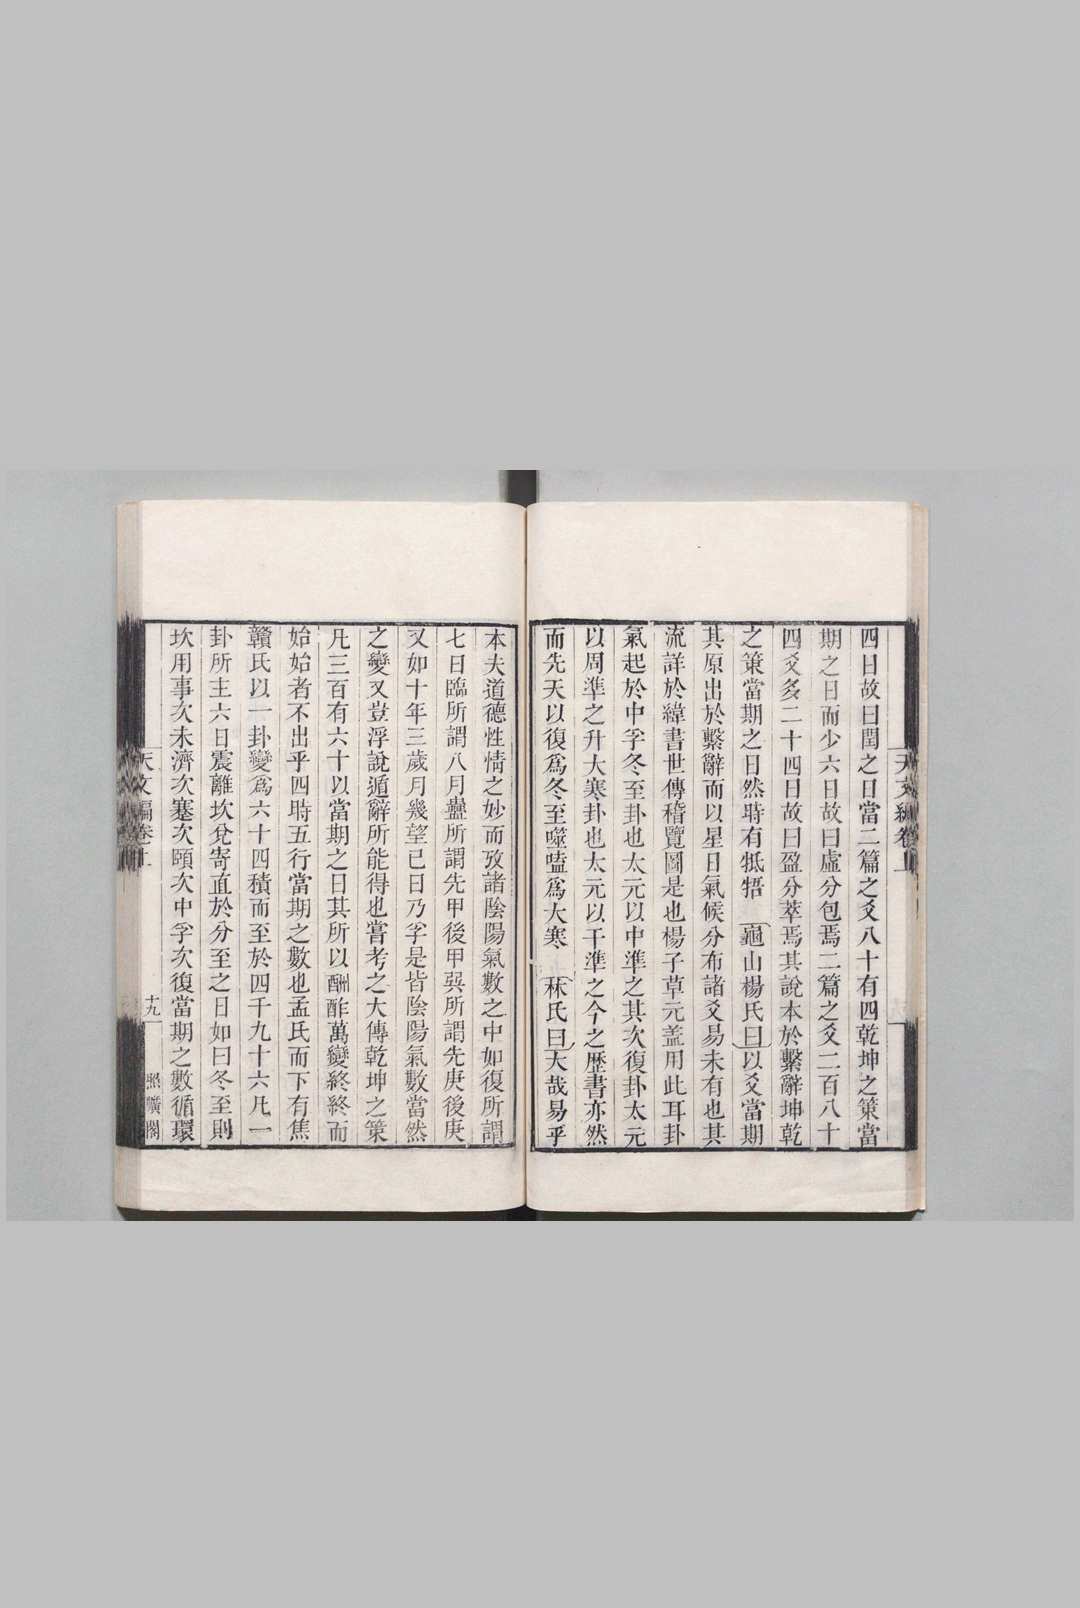 四日故曰閏之日當二篇之爻八十有四乾坤之策當
期之日而少六日故曰虛分包焉二篇之爻二百八十
四爻多二十四日故曰盈分萃焉其說本於繫辭坤乾
之策當期之日然時有牴牾 龜山楊氏曰以爻當期
其原出於繫辭而以星日氣候分布諸爻易未有也其
流詳於緯書世傳稽覽圖是也楊子草元蓋用此耳卦
氣起於中孚冬至卦也太元以中準之其次復卦太元
以周準之升大寒卦也太元以干準之今之歷書亦然
而先天以復爲冬至噬嗑爲大寒 秝氏曰大哉易乎
本夫道德性情之妙而攷諸陰陽氣數之中如復所謂
七日臨所謂八月蠱所謂先甲後甲巽所謂先庚後庚
又如十年三歲月幾望已日乃孚是皆陰陽氣數當然
之變又豈浮說遁辭所能得也嘗考之大傳乾坤之策
凡三百有六十以當期之日其所以酬酢萬變終終而
始始者不出乎四時五行當期之數也孟氏而下有焦
贛氏以一卦變爲六十四積而至於四千九十六凡一
卦所主六日震離坎兌寄直於分至之日如曰冬至則
坎用事次未濟次蹇次頤次中孚次復當期之數循環
天文編卷上
十九
照曠閣